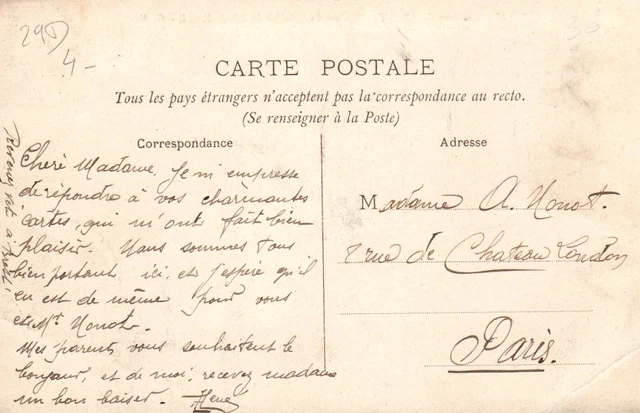 29D
4-
30
CARTE POSTALE
Tous les pays étrangers n'acceptent pas la correspondance au recto.
(Se renseigner à la Poste)
Correspondance
Cherè Madame. Je m'empresse
de répondre à vos charmantes
cartes, qui m'ont fait bien
plaisir. Nous sommes tous
bien portant ici, et j'espère qu'il
en est de même pour vous
et Mr Nonot.
Mes parents vous souhaitent le
bonjour, et de moi, recevez madame
un bon baiser.
Revenez vite à
Adresse
Madame A. Nonot.
7 rue de Chateau Londons
Paris.